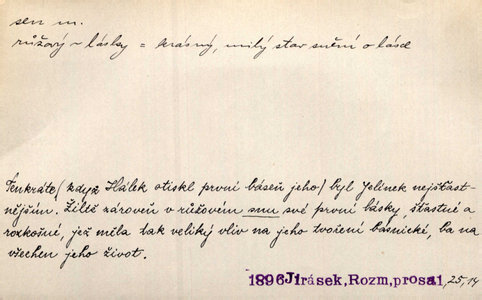 sen m.
růžový ~ lásky = krásný, milý stav snění o lásce
Tenkráte (když Hálek otiskl první báseň jeho) byl Jelínek nejšťast-
nějším. Žilť zároveň v růžovém snu své první lásky, šťastné a
rozkošné, jež měla tak veliký vliv na jeho tvoření básnické, ba na
všechen jeho život.
1896 Jirásek, Rozm, prosa 1, 25, 14